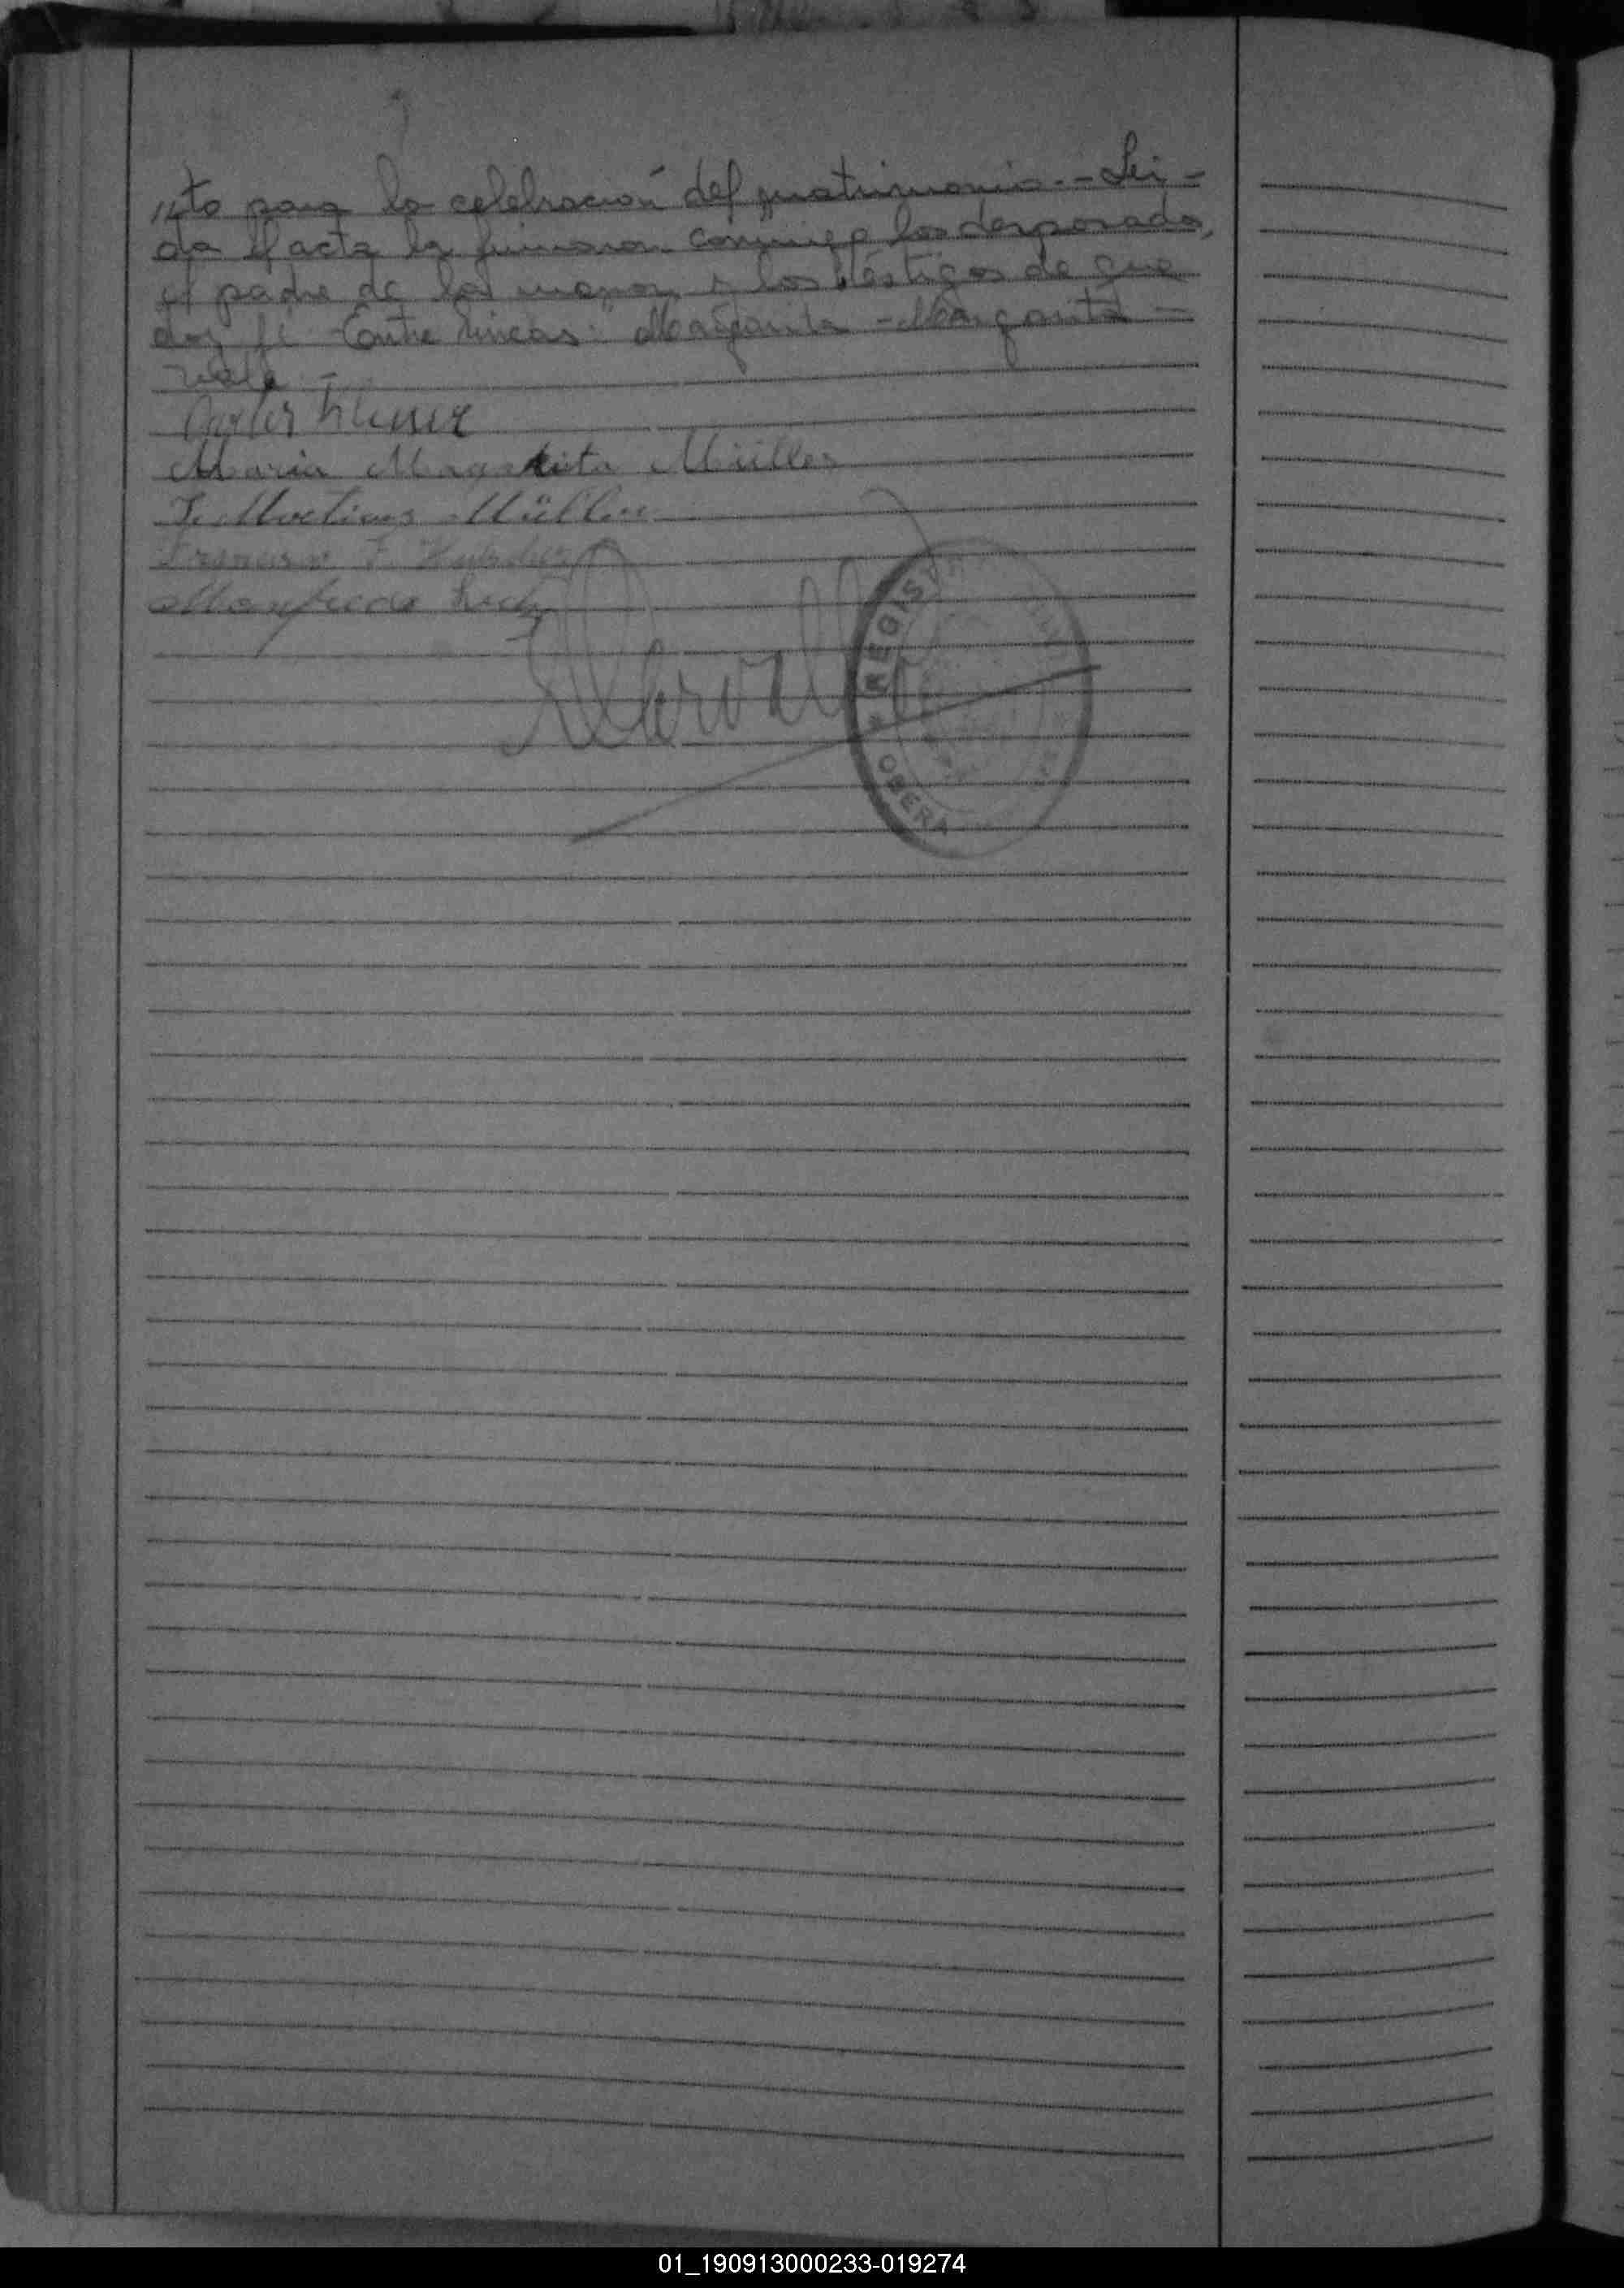 //to para la celebración del matrimonio.- Leí-
da el acta la firmaron conmigo los desposados,
el padre de la menor y los testigos de que
doy fé. Entre lineas: "Margarita - Margarita -
vale.-
Maria Margarita Müller
Müller
Francisco F.
Manfredo
REGISTR
OBERA
01_190913000233-019274